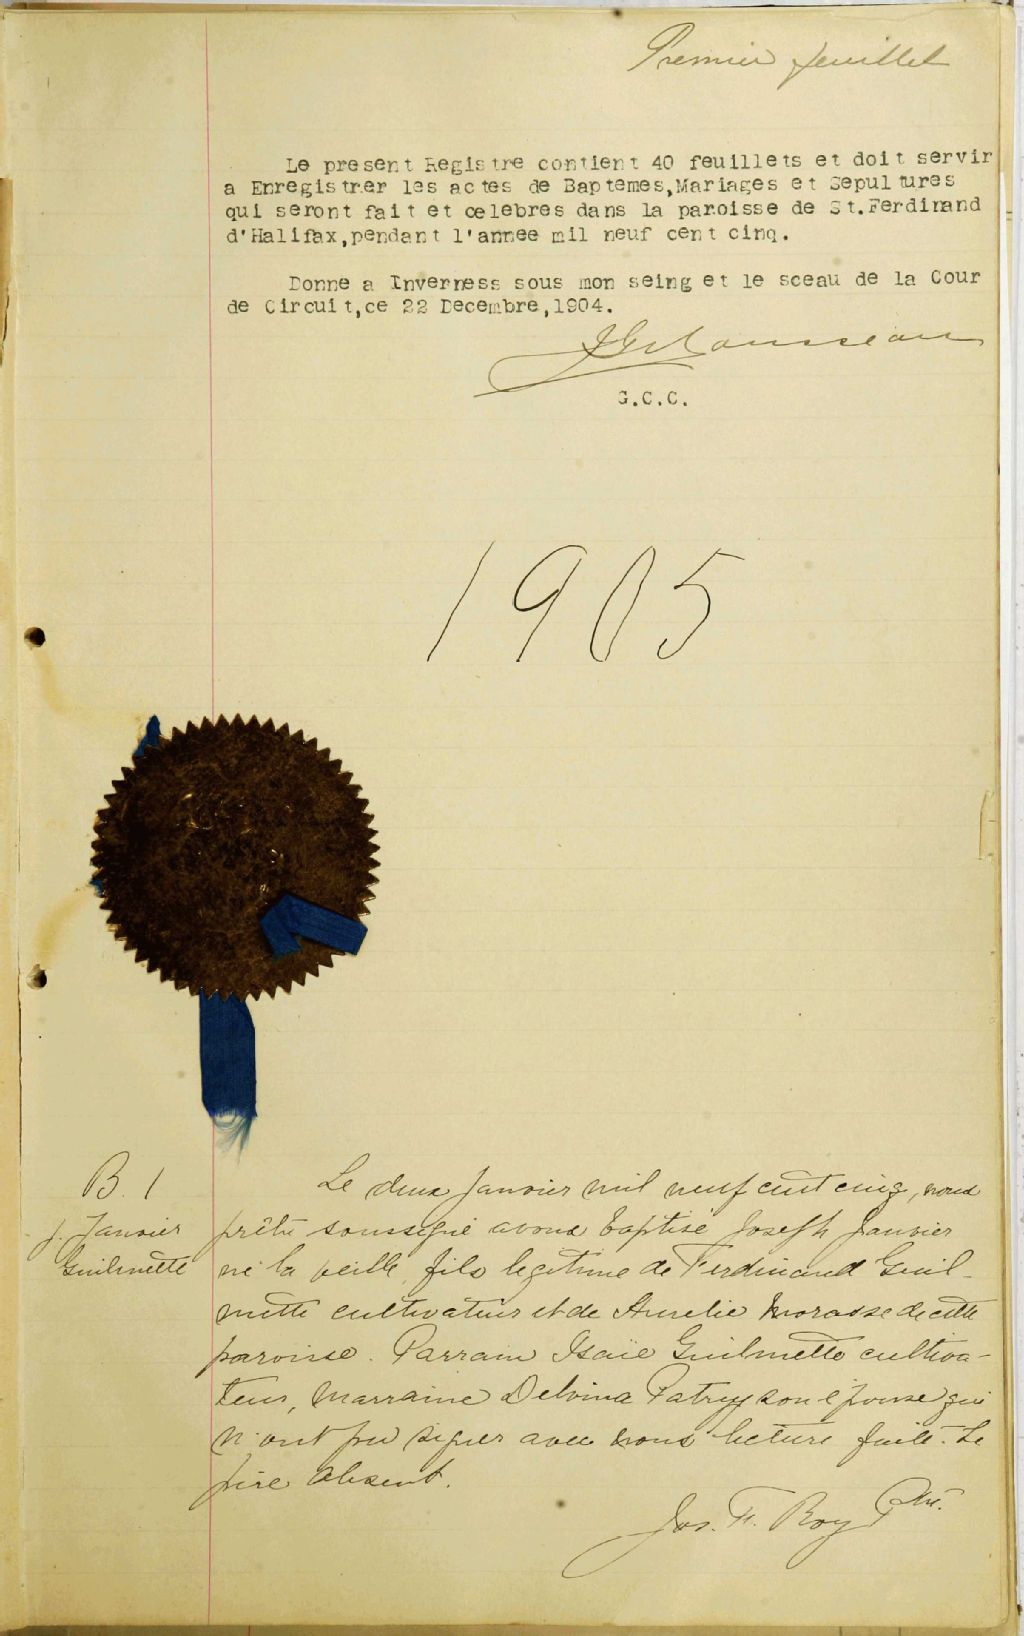 Premier feuillet
Le present Registre contient 40 feuillets et doit servir
a Enregistrer les actes de Baptemes,Mariages et Sepultures
qui seront fait et celebres dans la paroisse de St.Ferdinand
d'Halifax,pendant l'annee mil neuf cent cinq.
Donne a Inverness sous mon seing et le sceau de la Cour
de Circuit,ce 22 Decembre,1904.
Rousseau
G.C.C.
1905
B. 1
J. Janvier
Guilmette
Le deux Janvier mil neuf cent cinq, nous
prêtre soussigné avons baptisé Joseph Janvier
né la veille, fils légitime de Ferdinand Guil-
mette cultivateur et de Aurelie Morasse de cette
paroisse. Parrain Isaïe Guilmette cultiva-
teur, Marraine Delvina Patry son épouse qui
n'ont pu signer avec nous lecture faite. Le
père absent.
Jos. F. Roy Ptre.